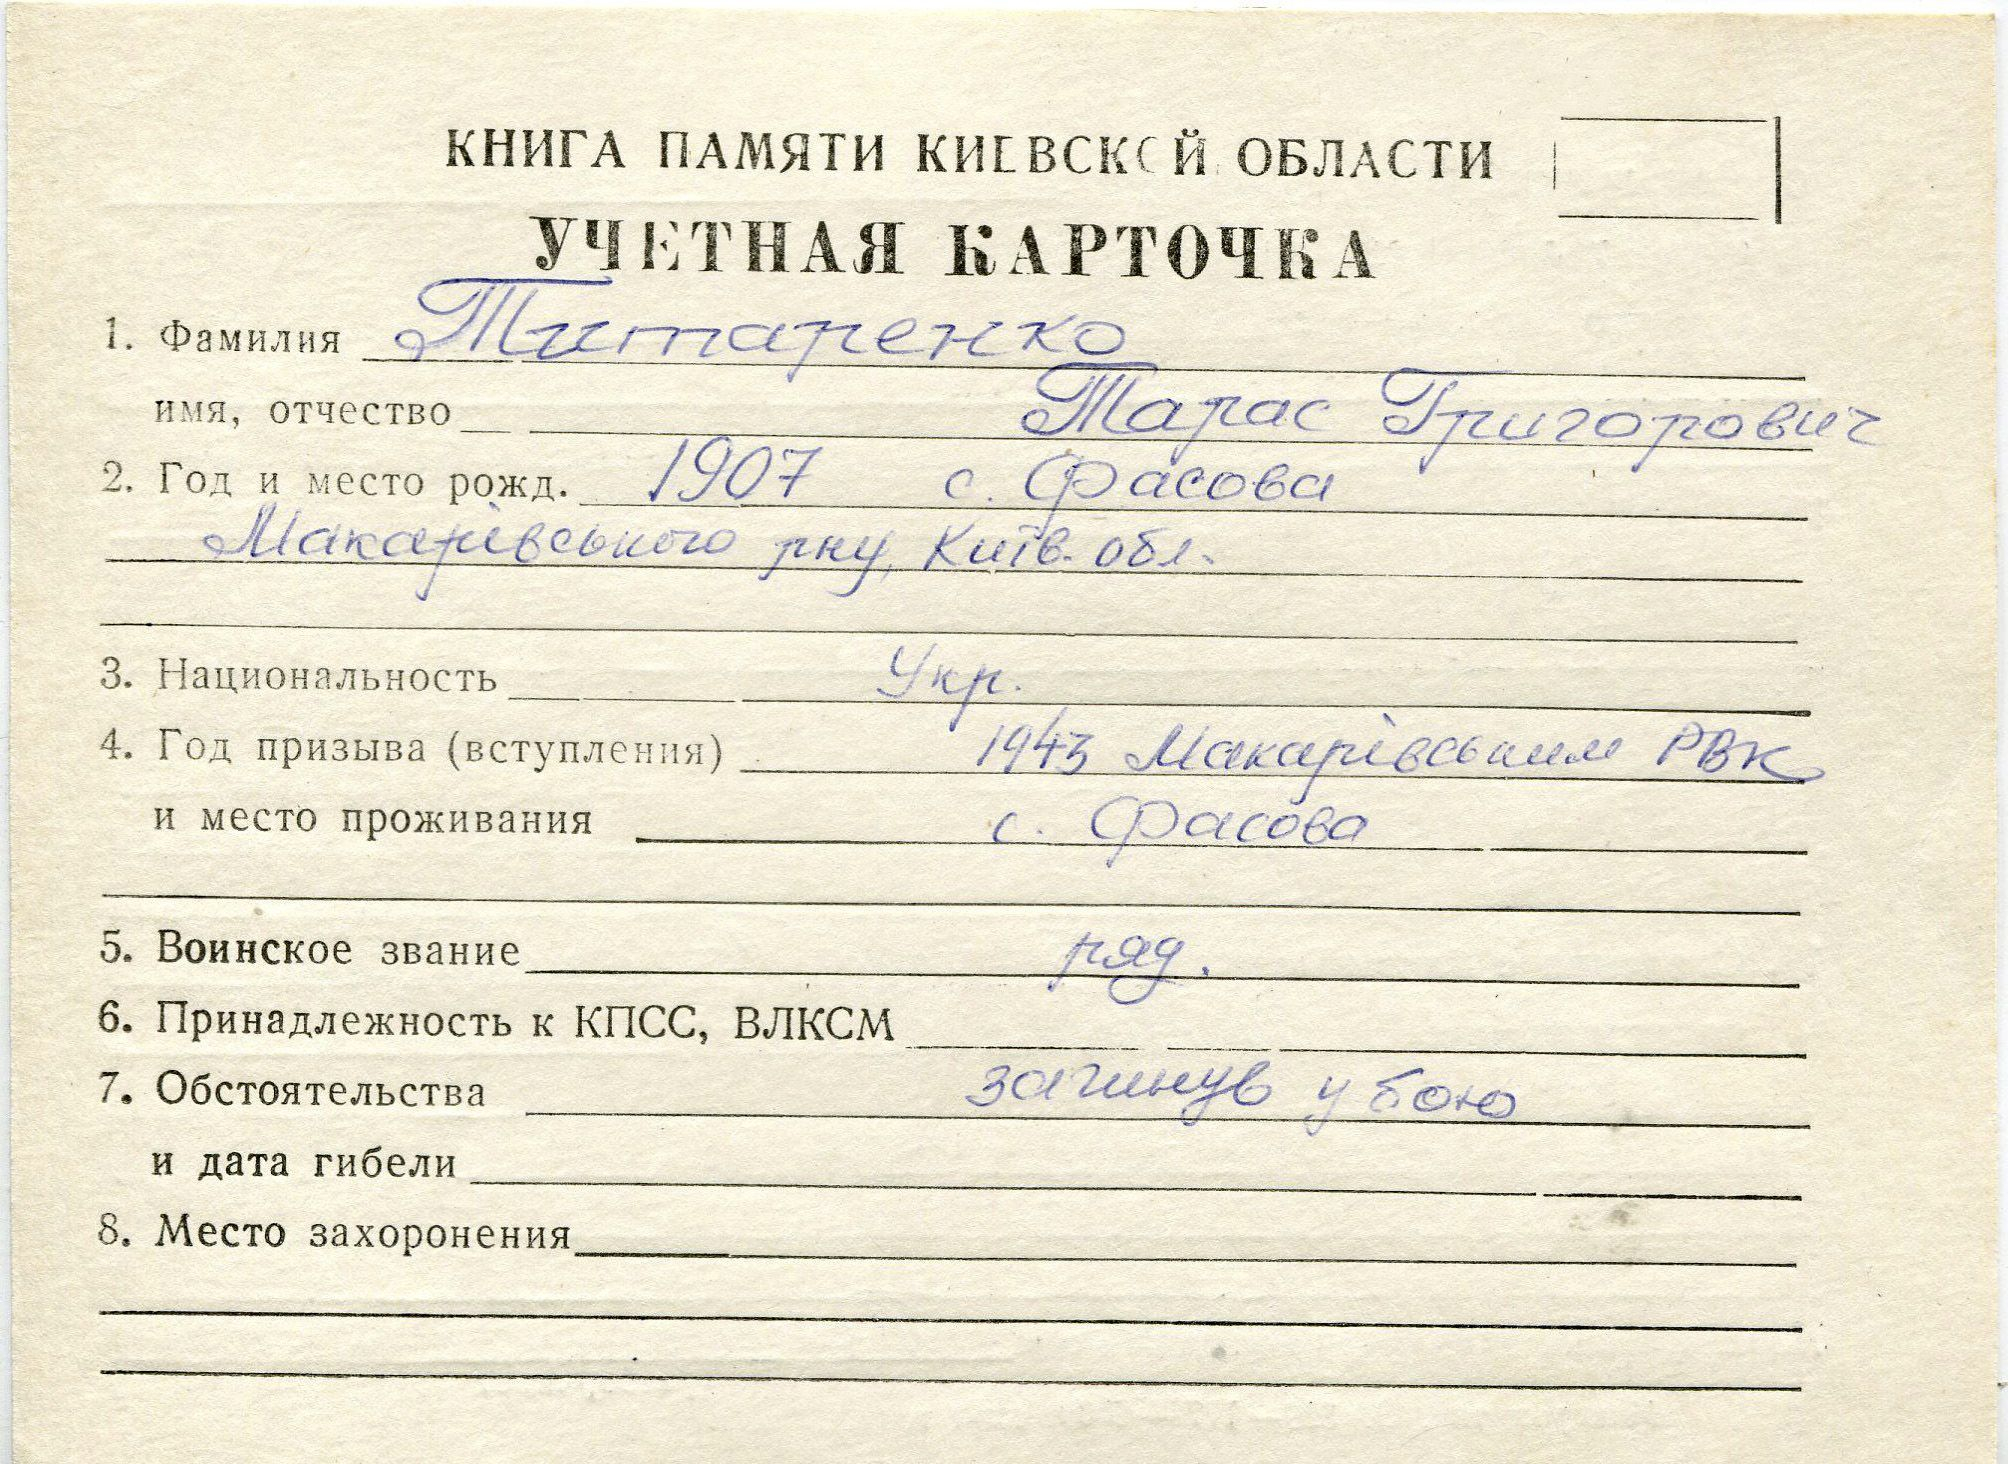 КНИГА ПАМЯТИ КИЕВСКОЙ ОБЛАСТИ
УЧЕТНАЯ КАРТОЧКА
1. Фамилия Титаренко
имя, отчество Тарас Григорович
2. Год и место рожд. 1907 с. Фасова
Макарівського рну, Київ. обл.
3. Национальность Укр.
4. Год призыва (вступления) 1943 Макарівським РВК
и место проживания с. Фасова
5. Воинское звание ряд.
6. Принадлежность к КПСС, ВЛКСМ
7. Обстоятельства загинув у бою
и дата гибели
8. Место захоронения